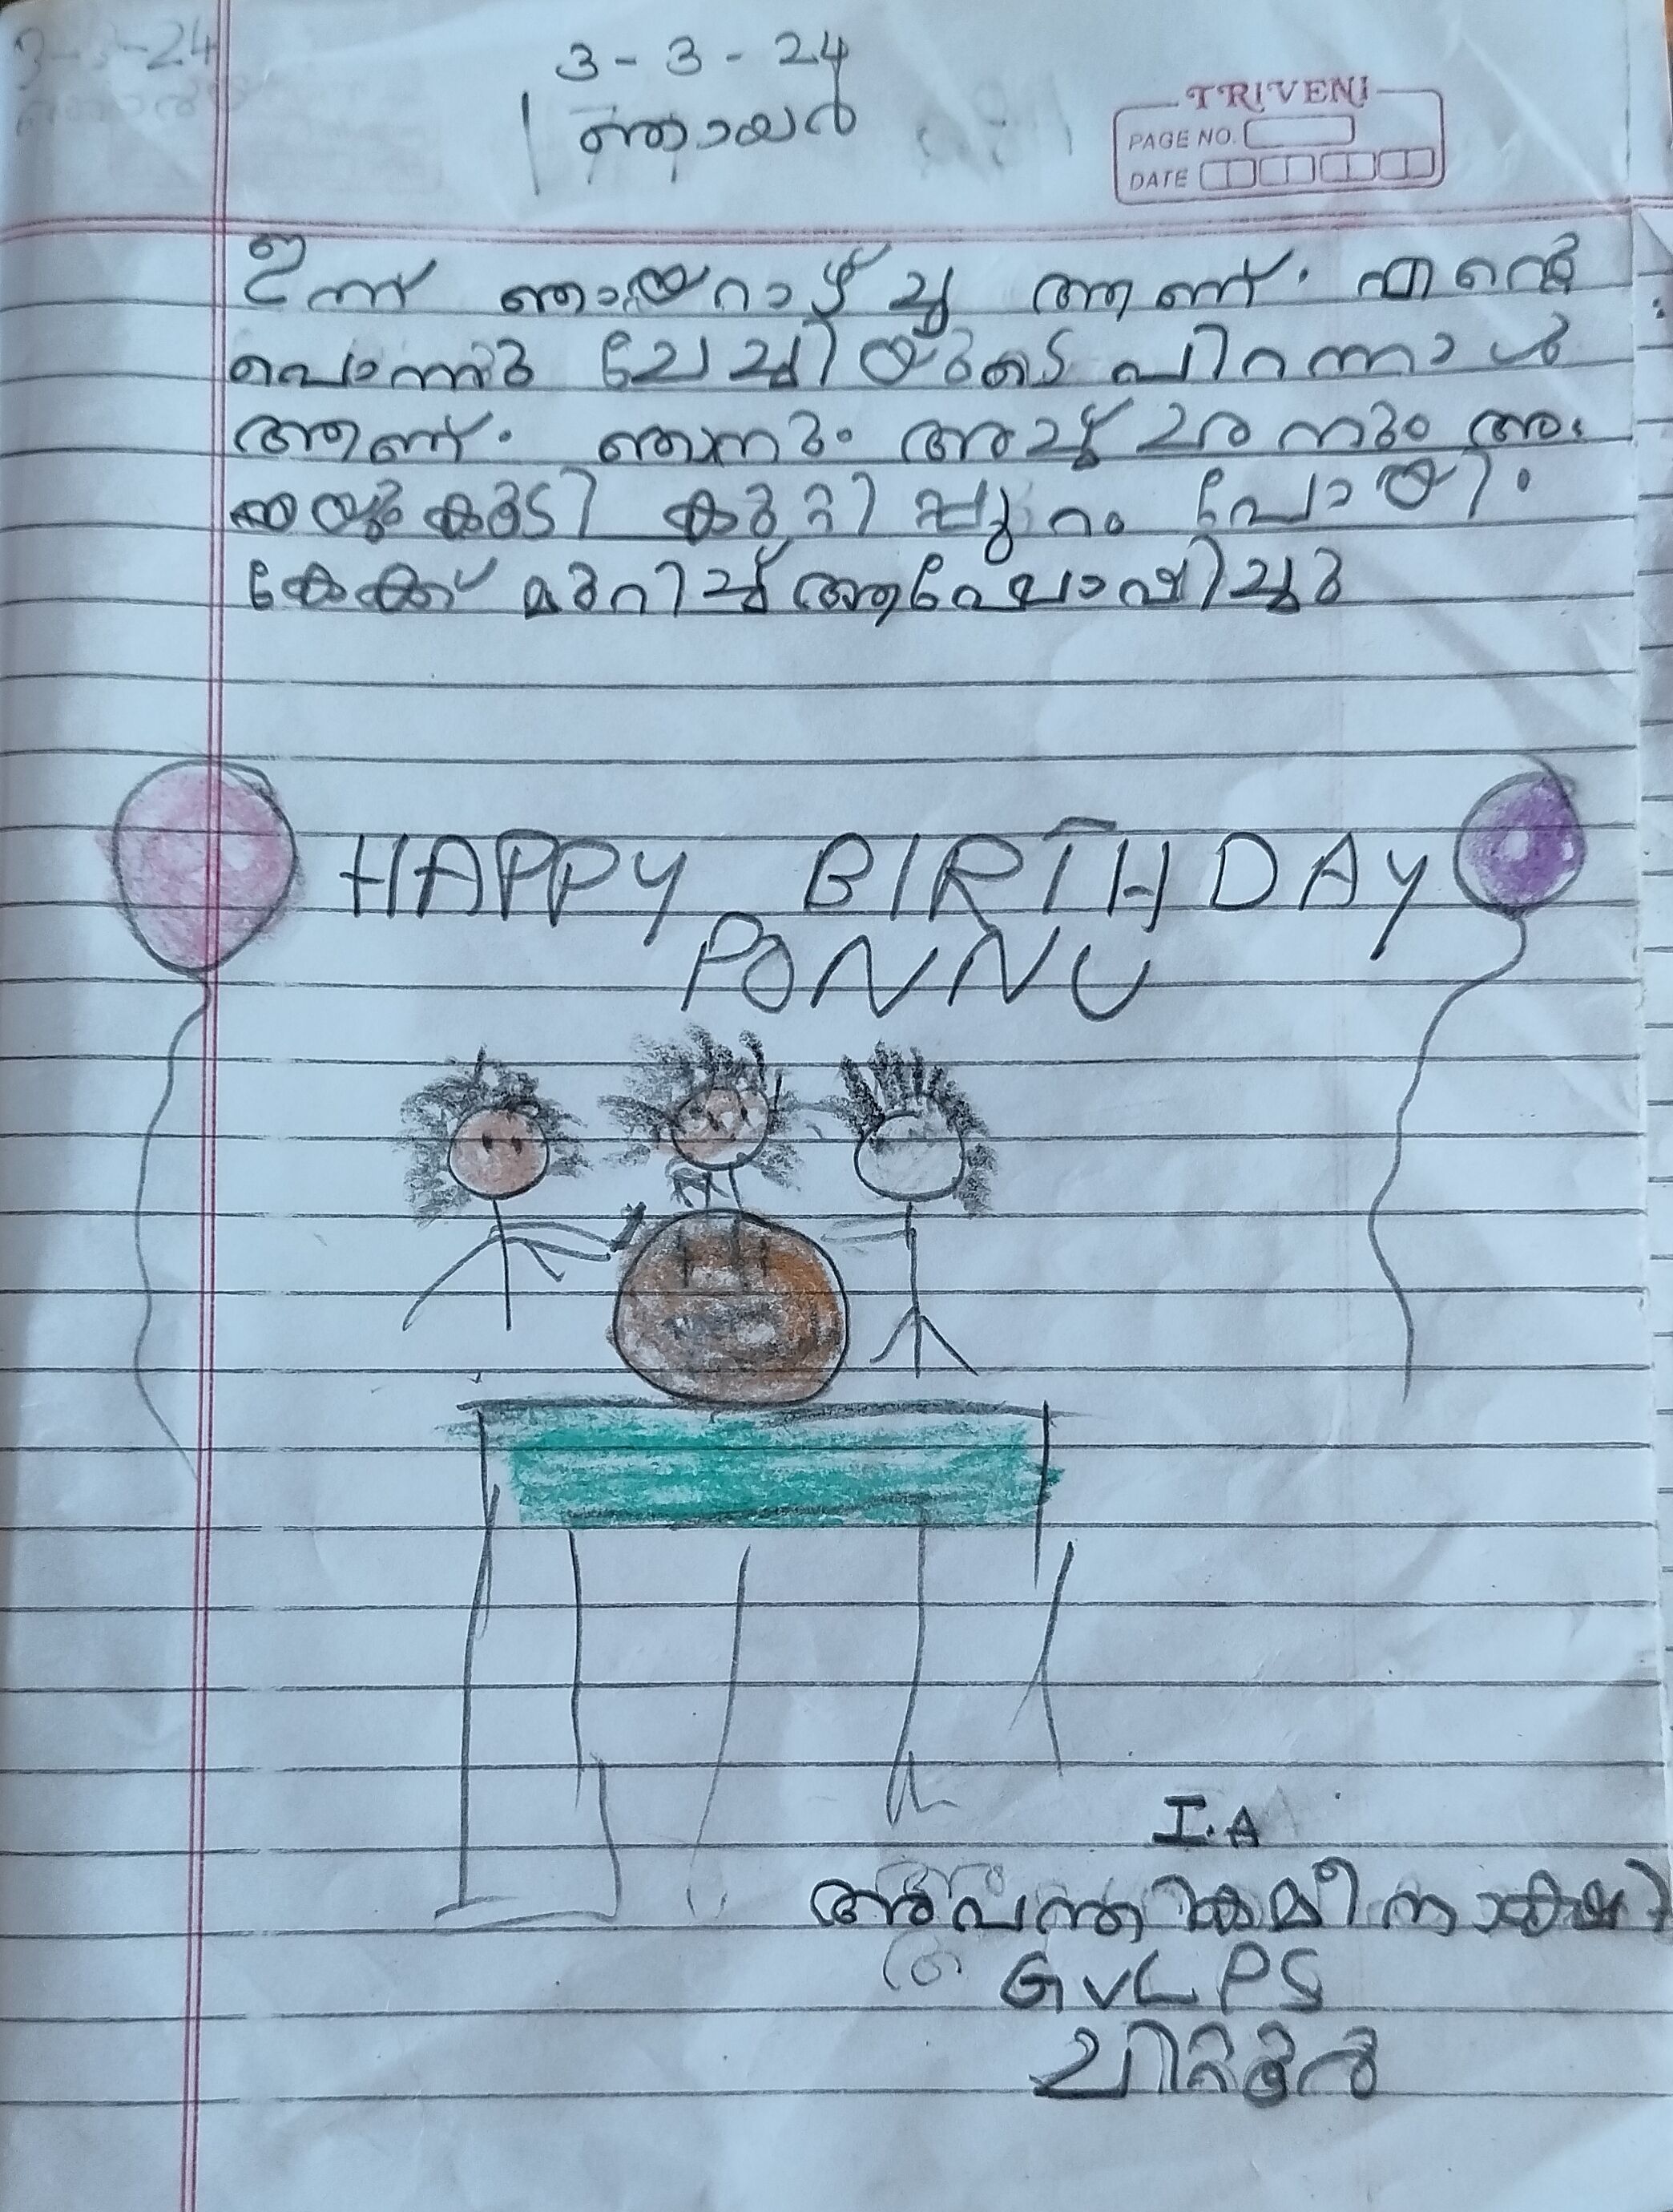 3-3-24
ഞായർ
TRIVENI
PAGE NO.
DATE
ഇന്ന് ഞായറാഴ്ച്ച ആണ്. എന്റെ
പൊന്നു ചേച്ചിയുടെ പിറന്നാൾ
ആണ്. ഞനും അച്ച്ചനും അ
മ്മയുംകുടി കുറ്റിപ്പുറം പോയി.
കേക്ക് മുറിച്ച് ആഘോഷിച്ചു
HAPPY BIRTHDAY
PONNU
I.A
അവന്തികമീനാക്ഷി
GVLPS
ചിറ്റൂർ